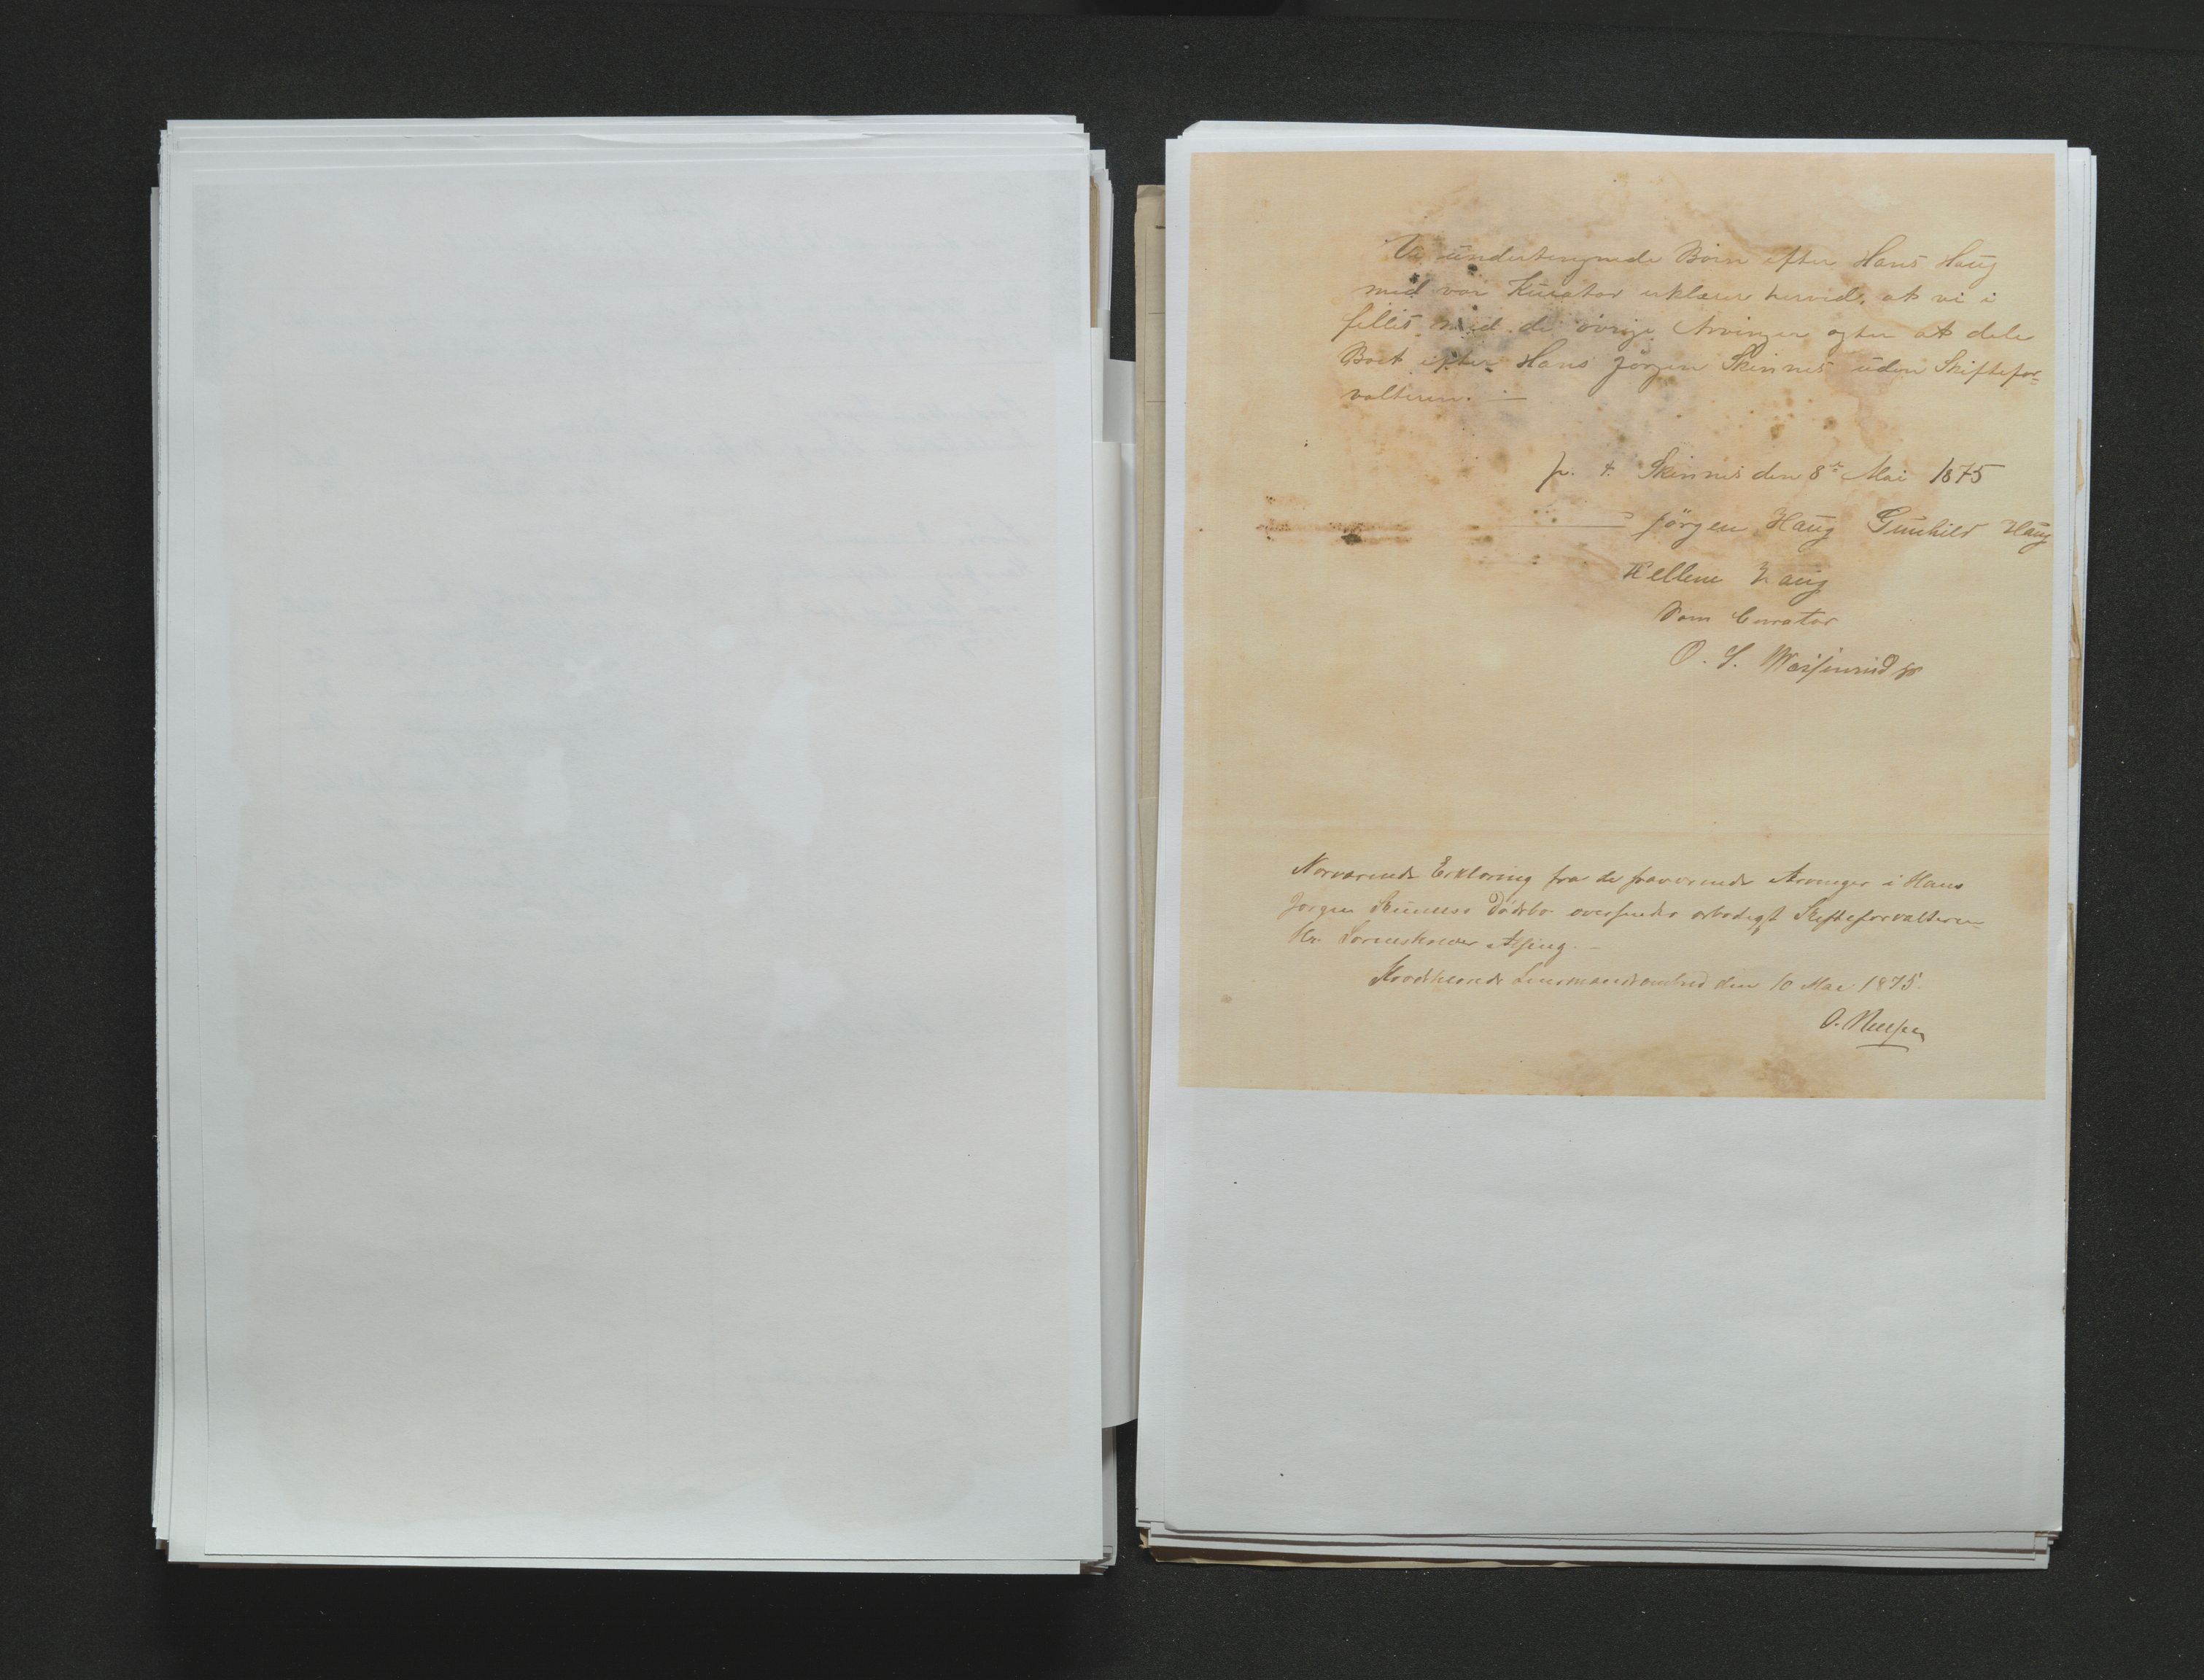 Vi undertegnede Börn efter Hans Haug
med vor Kurator erklære herved, at vi i
felles med de övrige Arvinger agter at dele
Boet efter Hans Jörgen Skinnes uden Skiftefor-
valteren. —
p. t. Skinnes den 8de Mai 1875
Jörgen Haug Gunhild Haug
Hellene Haug
Som Curator
O. S.
Nærværende Erklæring fra de fraværende Arvinger i Hans
Jørgen Skinnes Dødsbo oversendes ærbødigst Skifteforvalteren
Hr. Sorenskriver
Lensmandsombud den 10 Mai 1875.
O. Nielsen